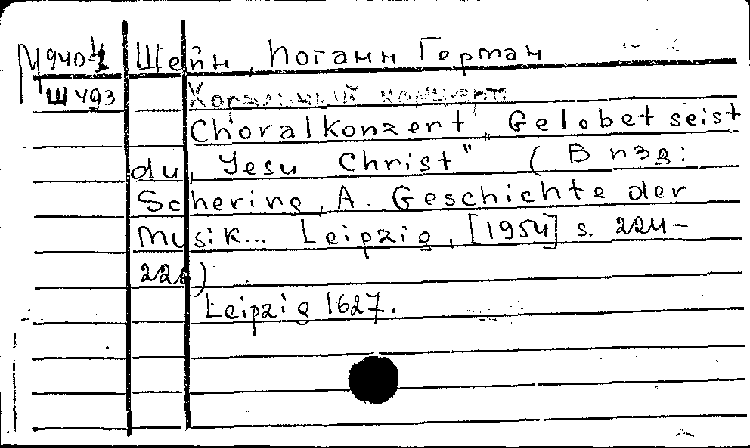 М940-1 Шейн, Иоганн Герман
Ш493 Хоральный концерт
Choralkonzert „Gelobet seist
du, Jesu Christ" (В изд:
Schering, A. Geschichte der
Musik... Leipzig, [1954] s. 224-
226)
Leipzig 1627.